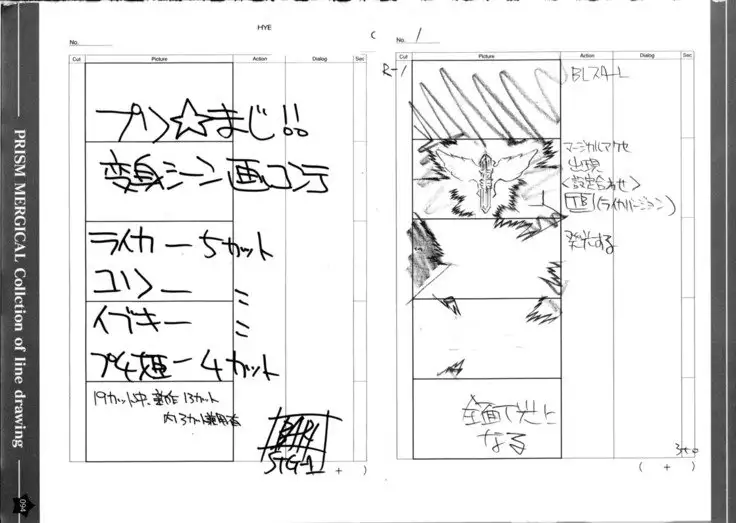 HYE
No.
Cut Picture Action Dialog Sec
プリ☆まじ!!
変身シーン画コンテ
ライカー5カット
コリンー 〃
イブキー 〃
プチ姫ー4カット
19カット中、新作13カット
内3カット兼用有
BARI
STG-1
( + )
No. 1
Cut Picture Action Dialog Sec
R-1
BLスタート
マージカルアクセ
出現
<設定合わせ>
TB(ライカバージョン)
発光する
全面T光に
なる
3+0
( + )
PRISM MERGICAL Collction of line drawing
094